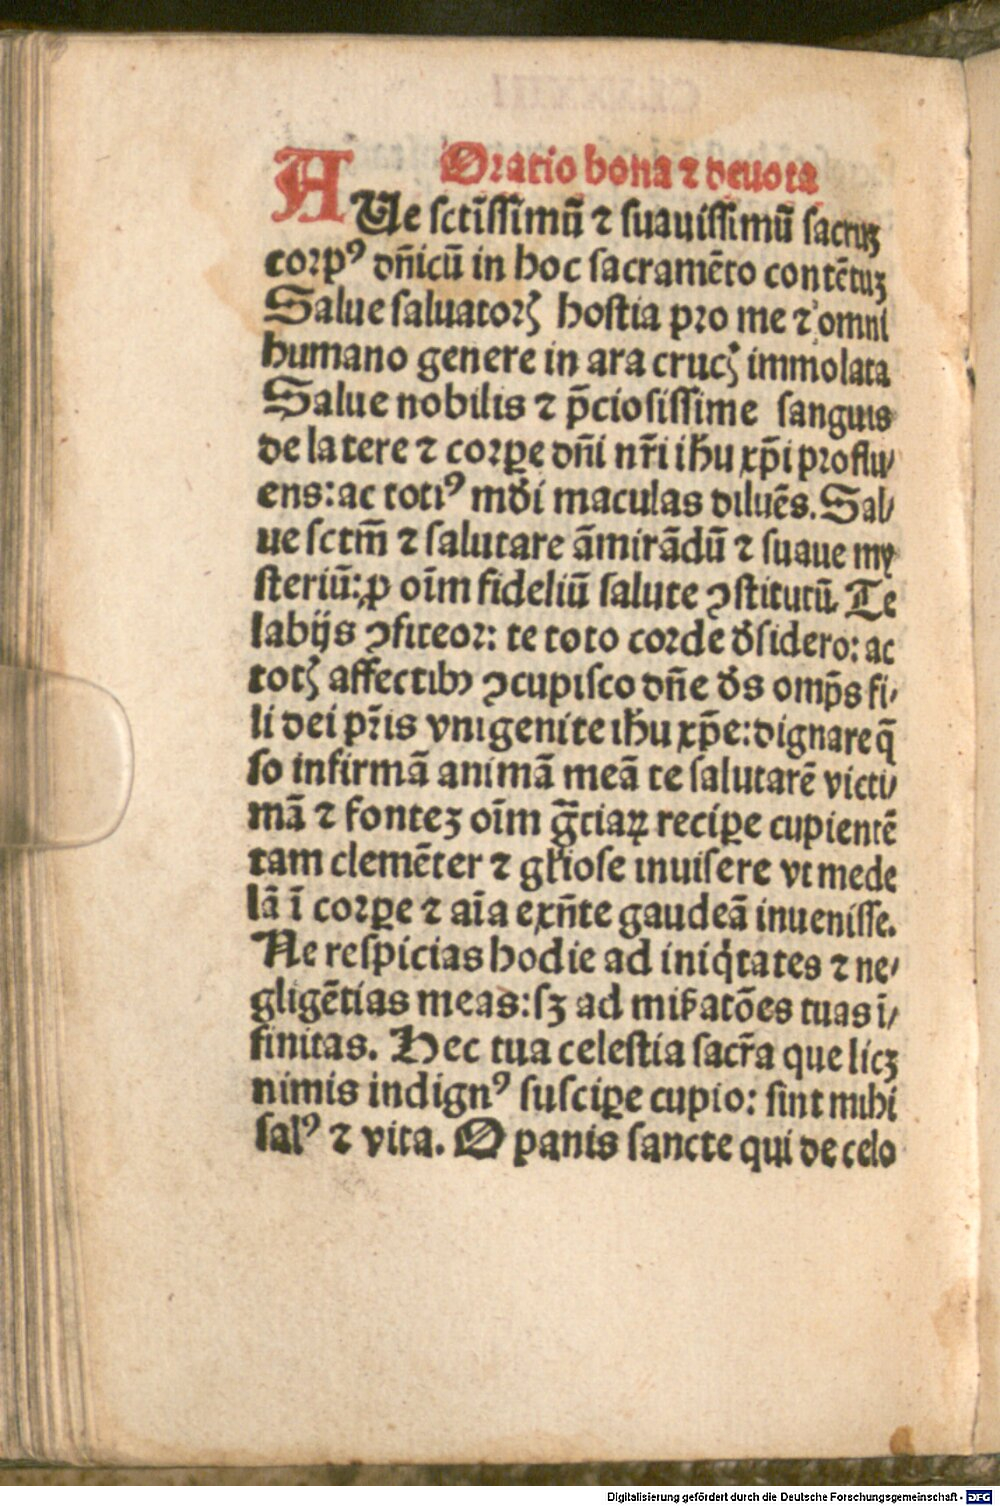 Oratio bona ⁊ deuota
AUe sctīssimū ⁊ suauissimū sacruꝫ
corpꝰ dn̄icū in hoc sacramēto contētuꝫ
Salue saluatorꝭ hostia pro me ⁊ omni
humano genere in ara crucꝭ immolata
Salue nobilis ⁊ p̄ciosissime sanguis
de latere ⁊ corꝑe dn̄i nr̄i ihu xp̄i proflu/
ens: ac totiꝰ mūdi maculas diluēs. Sal/
ue sctm̄ ⁊ salutare āmirādū ⁊ suaue my
steriū: ꝓ oīm fideliū salute ꝯstitutū. Te
labijs ꝯfiteor: te toto corde dᷤsidero: ac
totꝭ affectibꝰ ꝯcupisco dn̄e dᷤs omp̄s fi/
li dei pr̄is vnigenite ihu xp̄e: dignare q̄
so infirmā animā meā te salutarē victi/
mā ⁊ fonteꝫ oīm gr̄ciaꝝ reciꝑe cupientē
tam clemēter ⁊ gl̓iose inuisere vt mede
lā ī corꝑe ⁊ aīa exn̄te gaudeā inuenisse.
Ne respicias hodie ad iniqͥtates ⁊ ne/
gligētias meas: sꝫ ad mis̓atōes tuas ī/
finitas. Hec tua celestia sacr̄a que licꝫ
nimis indignꝰ susciꝑe cupio: sint mihi
salꝰ ⁊ vita. O panis sancte qui de celo
Digitalisierung gefördert durch die Deutsche Forschungsgemeinschaft - DFG